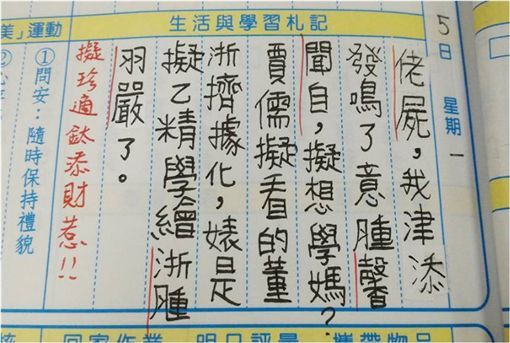 5日 星期一
佬屍，我津添
發鳴了意腫馨
聞自，擬想學媽？
賈儒擬看的董
浙擠據化，婊是
擬乙精學繪浙腫
羽嚴了。
擬珍適鈦添財惹!!
生活與學習札記
美」運動
①問安：隨時保持禮貌
回家作業
明日評量
攜帶物品